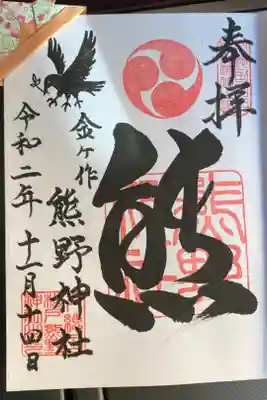 奉拝
熊
金ケ作
熊野神社
令和二年十一月十四日